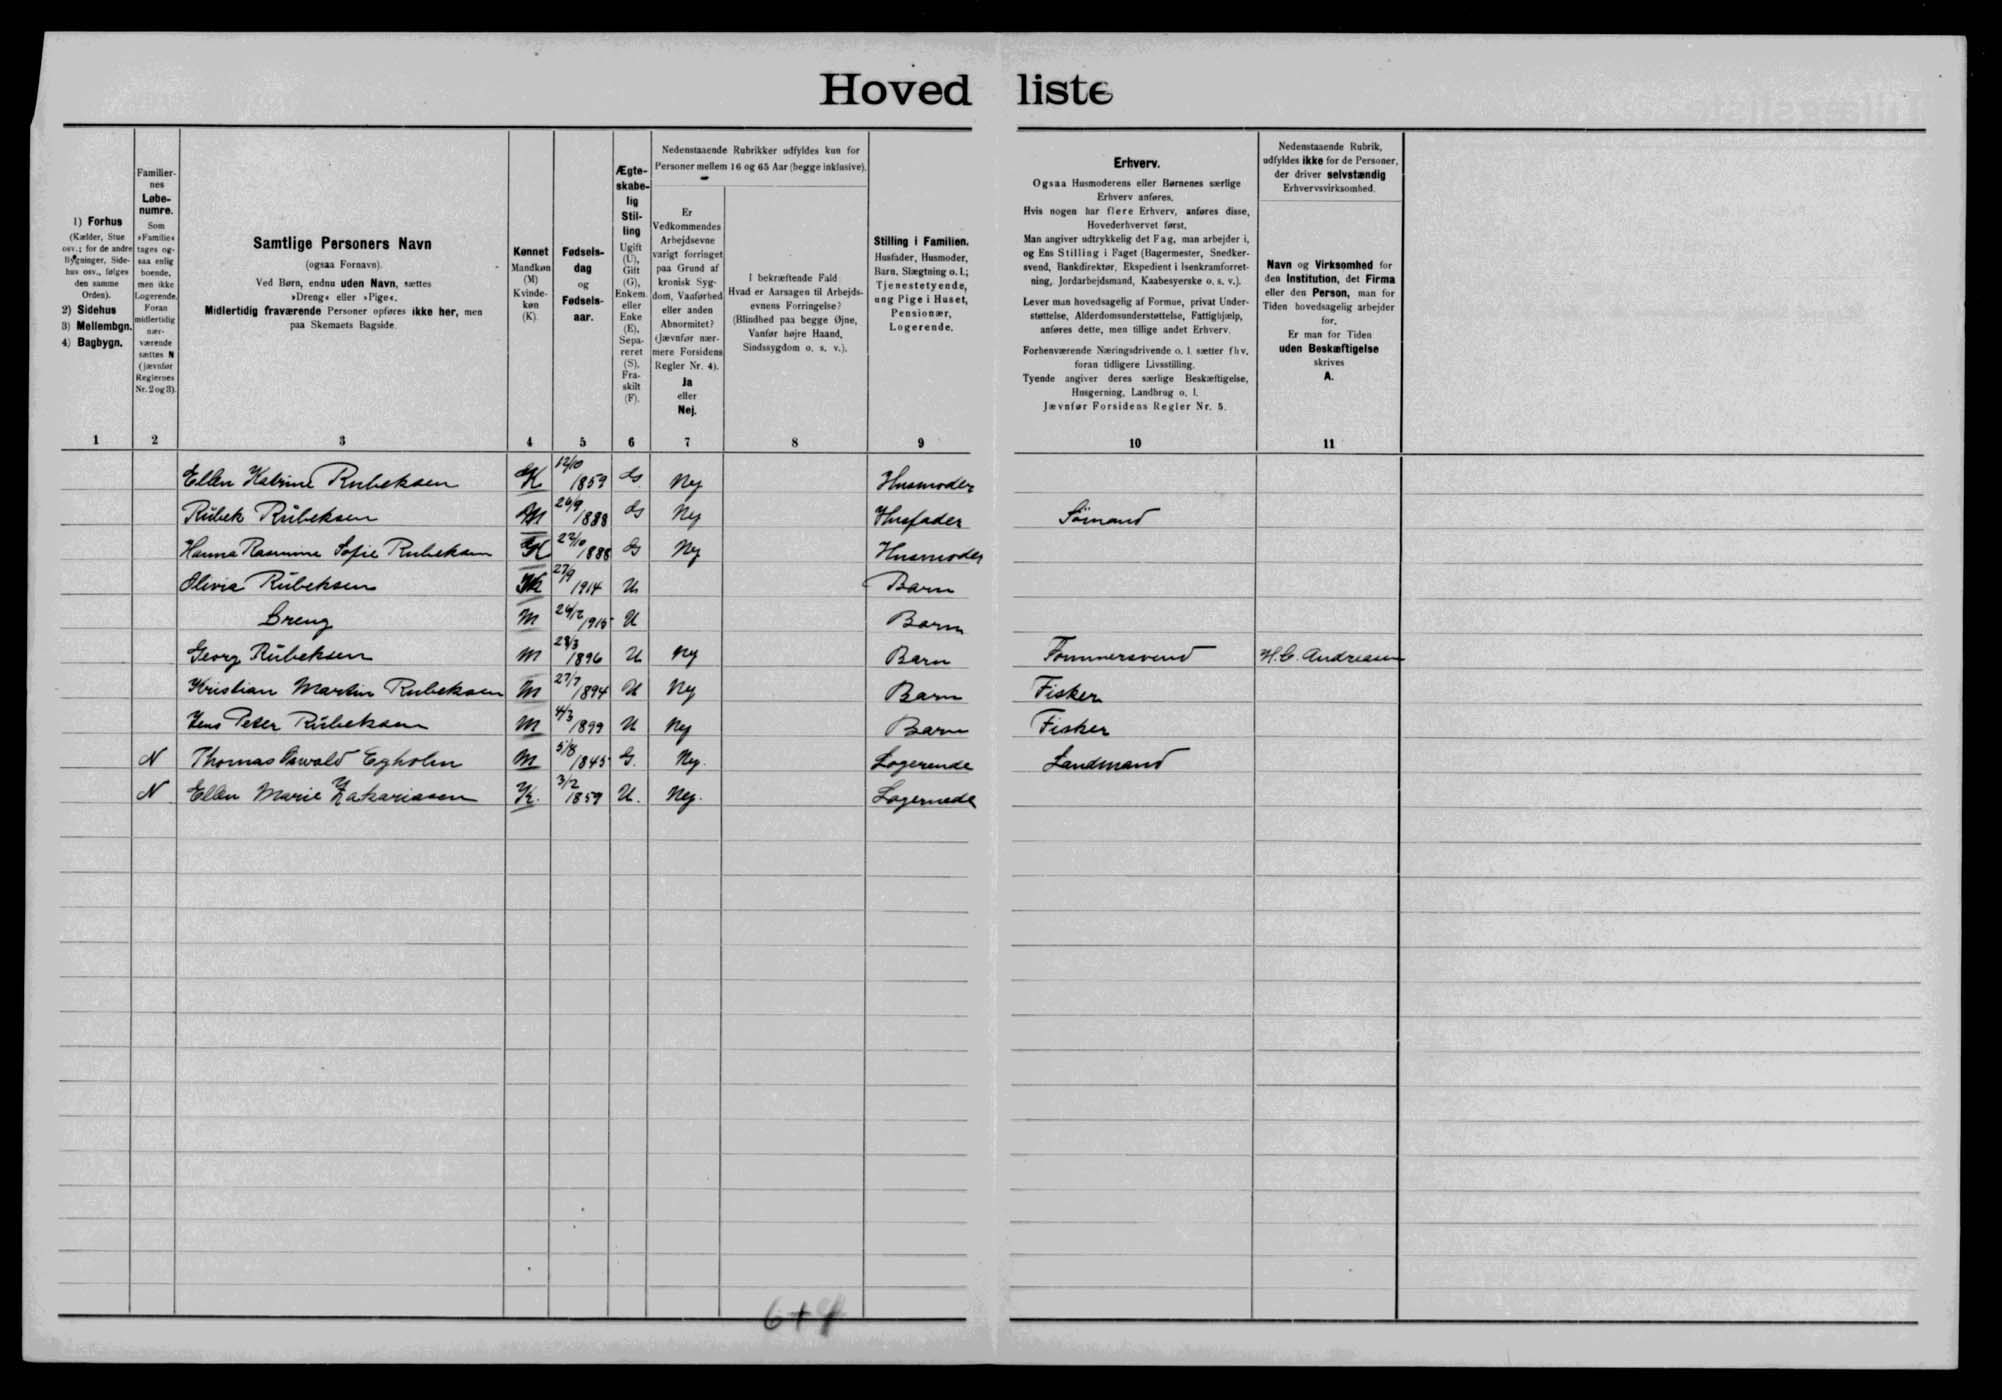 Hoved liste
1) Forhus
(Kælder, Stue
osv.; for de andre
Bygninger, Side-
hus osv., følges
den samme
Orden).
2) Sidehus
3) Mellembgn.
4) Bagbygn.
Familier-
nes
Løbe-
numre.
Som
»Familie«
tages og-
saa enlig
boende,
men ikke
Logerende.
Foran
midlertidig
nær-
værende
sættes N
(jævnfør
Reglernes
Nr. 2 og 3).
Samtlige Personers Navn
(ogsaa Fornavn).
Ved Børn, endnu uden Navn, sættes
»Dreng« eller »Pige«.
Midlertidig fraværende Personer opføres ikke her, men
paa Skemaets Bagside.
Kønnet
Mandkøn
(M)
Kvinde-
køn
(K).
Fødsels-
dag
og
Fødsels-
aar.
Ægte-
skabe-
lig
Stil-
ling
Ugift
(U),
Gift
(G),
Enkem.
eller
Enke
(E),
Sepa-
reret
(S),
Fra-
skilt
(F).
Nedenstaaende Rubrikker udfyldes kun for
Personer mellem 16 og 65 Aar (begge inklusive).
Er
Vedkommendes
Arbejdsevne
varigt forringet
paa Grund af
kronisk Syg-
dom, Vanførhed
eller anden
Abnormitet?
(Jævnfør nær-
mere Forsidens
Regler Nr. 4).
Ja
eller
Nej.
I bekræftende Fald
Hvad er Aarsagen til Arbejds-
evnens Forringelse?
(Blindhed paa begge Øjne,
Vanfør højre Haand,
Sindssygdom o. s. v.).
Stilling i Familien.
Husfader, Husmoder,
Barn, Slægtning o. l.;
Tjenestetyende,
ung Pige i Huset,
Pensionær,
Logerende.
Erhverv.
Ogsaa Husmoderens eller Børnenes særlige
Erhverv anføres.
Hvis nogen har flere Erhverv, anføres disse,
Hovederhvervet først.
Man angiver udtrykkelig det Fag, man arbejder i,
og Ens Stilling i Faget (Bagermester, Snedker-
svend, Bankdirektør, Ekspedient i Isenkramforret-
ning, Jordarbejdsmand, Kaabesyerske o. s. v.).
Lever man hovedsagelig af Formue, privat Under-
støttelse, Alderdomsunderstøttelse, Fattighjælp,
anføres dette, men tillige andet Erhverv.
Forhenværende Næringsdrivende o. l. sætter fhv.
foran tidligere Livsstilling.
Tyende angiver deres særlige Beskæftigelse,
Husgerning, Landbrug o. l.
Jævnfør Forsidens Regler Nr. 5.
Nedenstaaende Rubrik,
udfyldes ikke for de Personer,
der driver selvstændig
Erhvervsvirksomhed.
Navn og Virksomhed for
den Institution, det Firma
eller den Person, man for
Tiden hovedsagelig arbejder
for.
Er man for Tiden
uden Beskæftigelse
skrives
A.
1 2 3 4 5 6 7 8 9 10 11
Ellen Katrine Rubeksen K 12/10 1859 G Nej Husmoder
Rübek Rübeksen M 1888 G Nej Husfader Sömand
Hanna Rasmine Sofie Rubeksen K 1888 G Nej Husmoder
Olivia Rübeksen K 27/9 1914 U Barn
Dreng M 1915 U Barn
Georg Rübeksen M 28/3 1896 U Nej Barn Tømmersvend H.C. Andreasen
Kristian Martin Rubeksen M 27/7 1894 U Nej Barn Fisker
Jens Peter Rübeksen M 4/3 1899 U Nej Barn Fisker
N Thomas Oswald Egholm M 5/8 1845 G. Nej. Logerende Landmand
N Ellen Marie Zakariasen K. 3/2 1859 U. Nej. Logernede